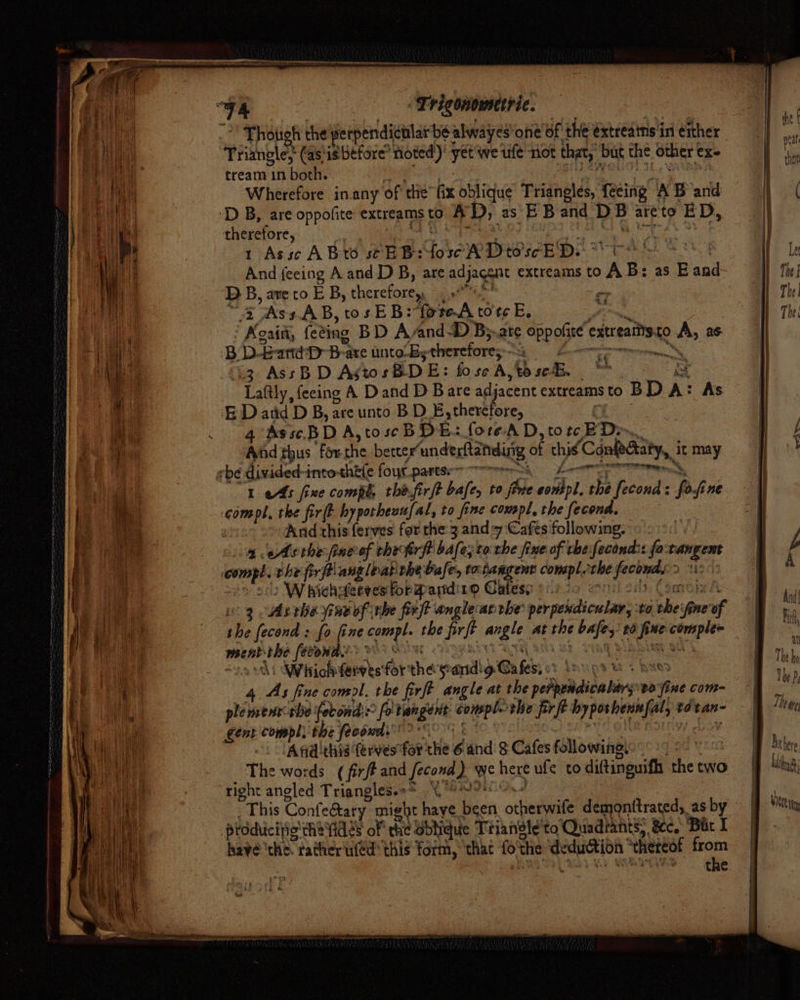 94 Trigonometrie.
Though the perpendicular be alwayes one of the extreams in either
Triangle, (as is before noted) yet we uſe not that, but the other ex-
tream in both.
Wherefore in any of the ſix oblique Triangles, ſeeing A B and
D B, are oppoſite extreams to A D, as E B and D B are to E D,
therefore,
1 As sc A B to sc E B: ſo sc A D to sc E D.
And ſeeing A and D B, are adjacent extreams to A B: as E and
D B, are to E B, therefore,
2 As s A B, to s E B: ſo tc A to tc E.
Again, ſeeing BD A and D B, are oppoſite extreams to A, as
B D E and D B are unto E, therefore,
3 As s B D A, to s B D E: ſo sc A, to sc E.
Laſtly, ſeeing A D and D B are adjacent extreams to B D A: As
E D and D B, are unto B D E, therefore,
4 As sc B D A, to sc B D E: ſo tc A D, to tc E D.
And thus for the better underſtanding of this Conſectary, it may
be divided into theſe four parts.
1 As ſine compl. the firſt baſe, to ſine compl. the ſecond: ſo ſine
compl. the firſt hypothenuſal, to ſine compl. the ſecond.
And this ſerves for the 3 and 7 Caſes following.
2 As the ſine of the firſt baſe, to the ſine of the ſecond: ſo tangent
compl. the firſt angle at the baſe, to tangent compl. the ſecond.
Which ſerves for and 10 Caſes.
3 As the ſine of the firſt angle at the perpendicular, to the ſine of
the ſecond: ſo ſine compl. the firſt angle at the baſe, to ſine comple-
ment the ſecond.
Which ſerves for the and 9 Caſes.
4 As ſine compl. the firſt angle at the perpendicular, to ſine com-
plement the ſecond: ſo tangent compl. the firſt hypothenuſal, to tan-
gent compl. the ſecond.
And this ſerves for the 6 and 8 Caſes following.
The words (firſt and ſecond) we here uſe to diſtinguiſh the two
right angled Triangles.
This Conſectary might have been otherwiſe demonſtrated, as by
producing the ſides of the oblique Triangle to Quadrants, &c. But I
have the rather uſed this form, that ſo the deduction thereof from
the